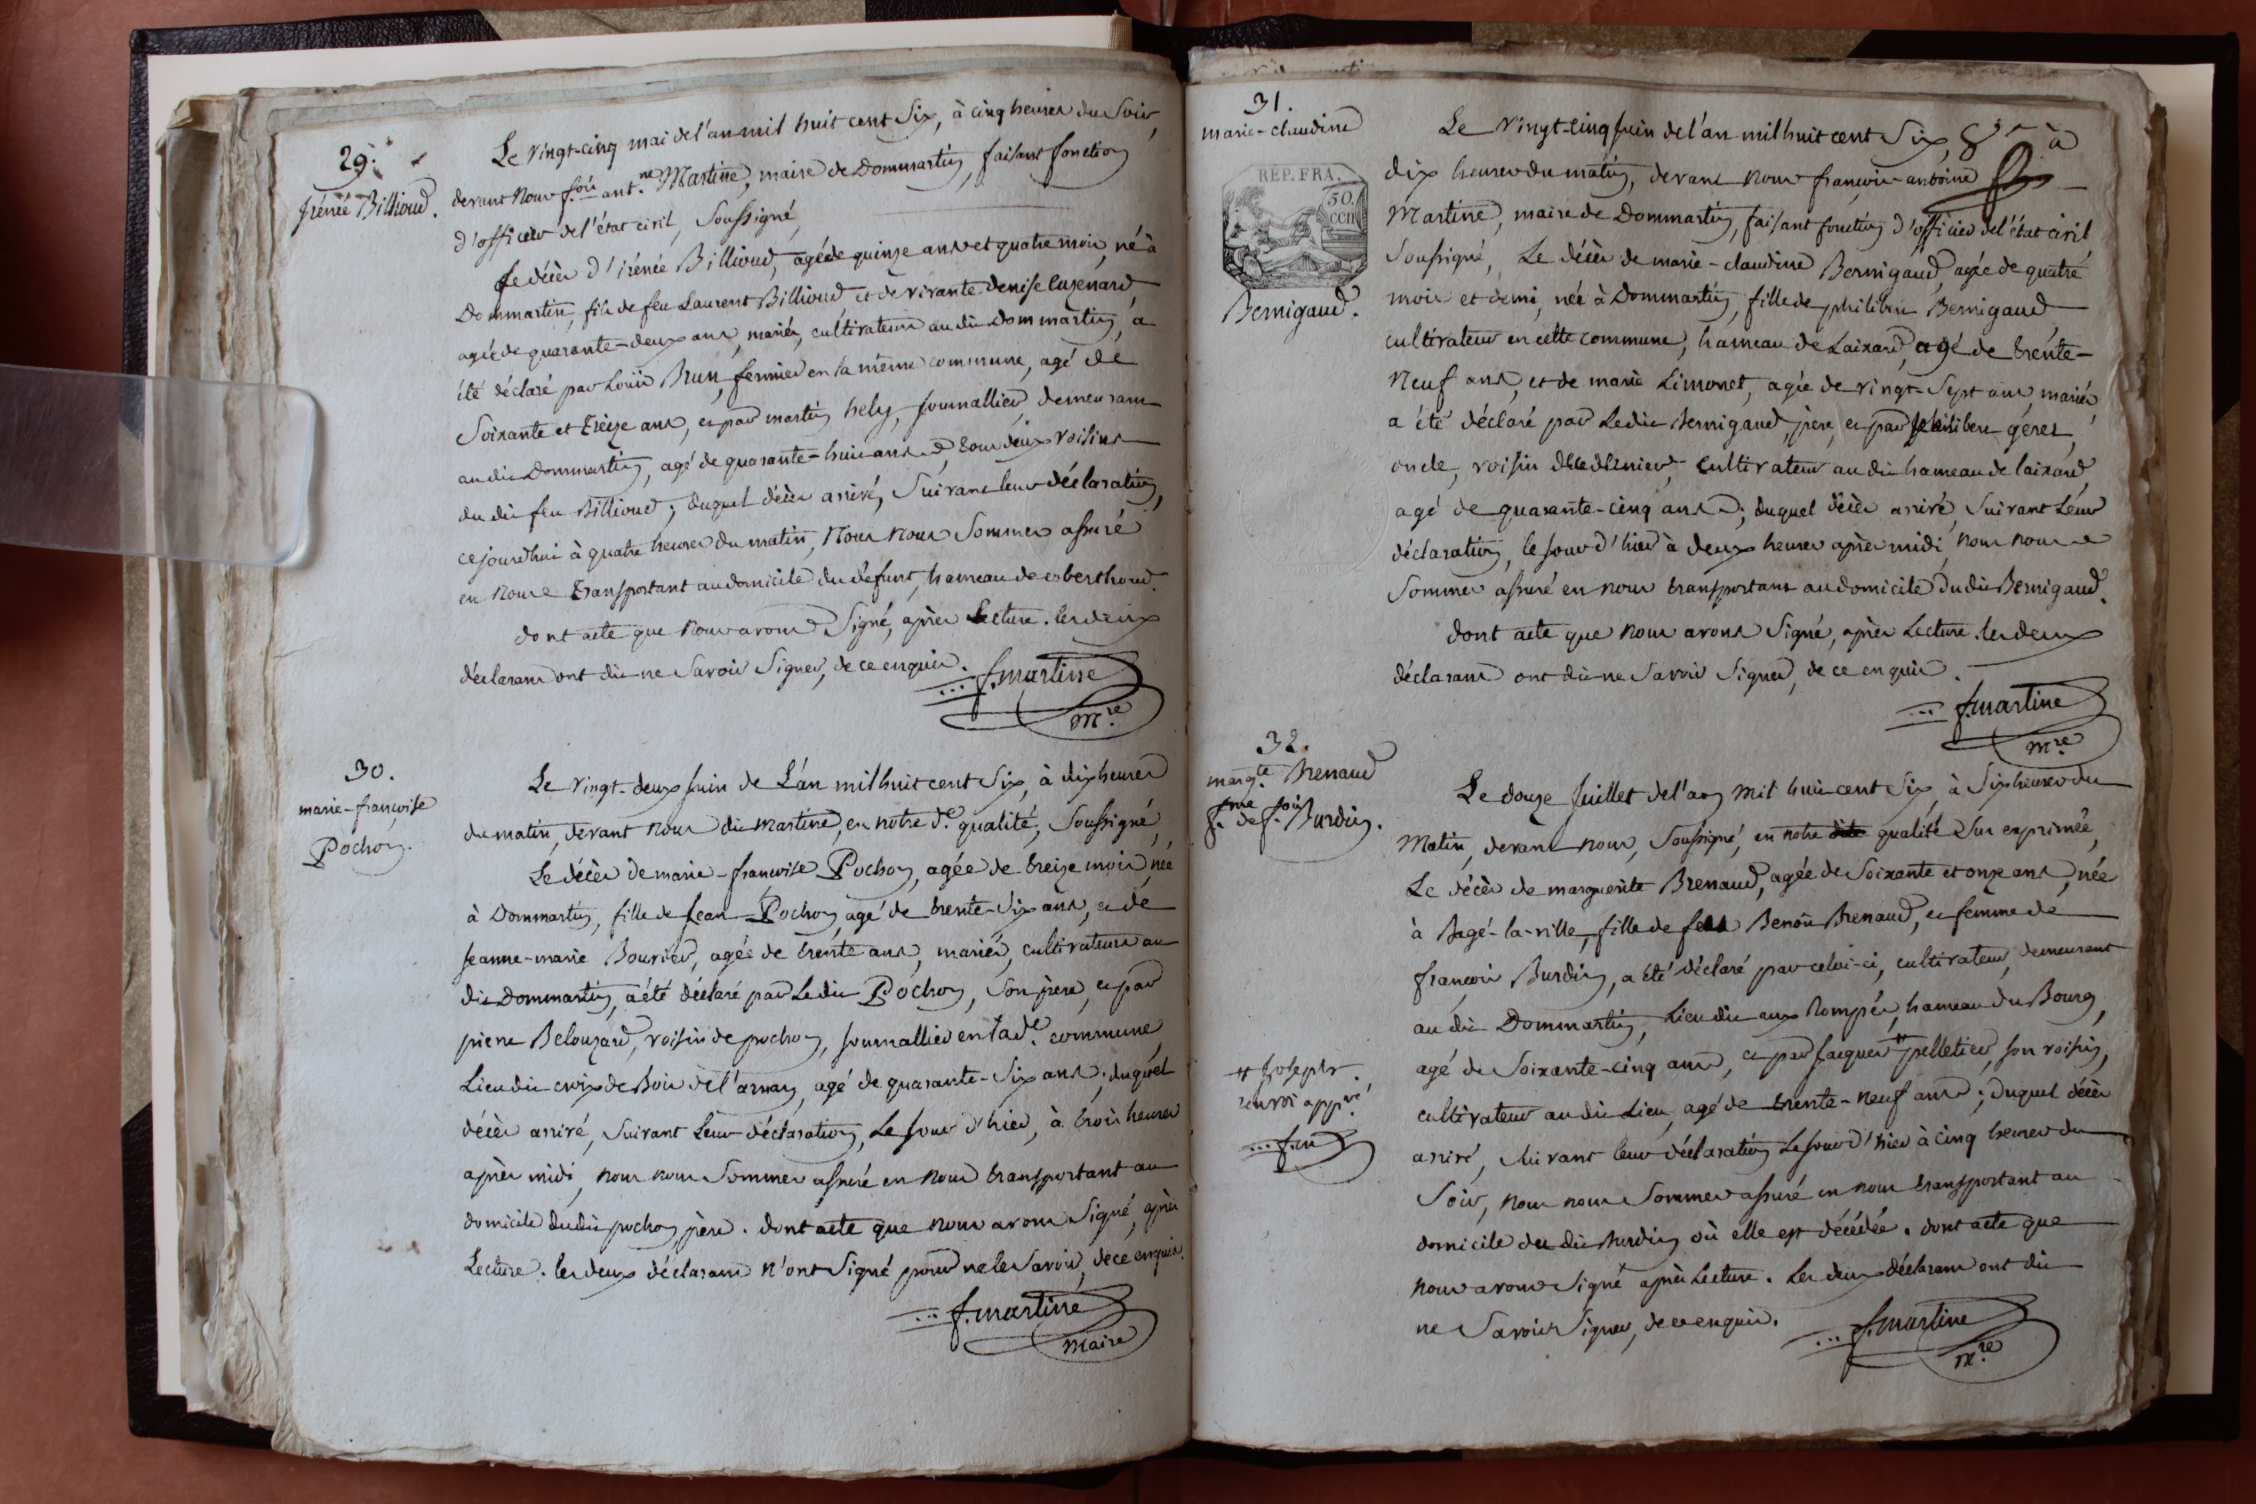 29.
irénée Billioud.
Le vingt-cinq mai de l'an mil huit cent six, à cinq heures du soir,
devant nous f.ois ant.ne Martine, maire de Dommartin, faisant fonction
d'officier de l'état civil, soussigné,
le décès d'irénée Billioud, agé de quinze ans et quatre mois, né à
Dommartin, fils de feu Laurent Billioud et de vivante denise Cuzenard
agée de quarante-deux ans, mariés, cultivateurs au dit dommartin, a
été déclaré par Louis Brun, fermier en la même commune, agé de
soixante et treize ans, et par martin hely, journallier, demeurant
au dit Dommartin, agé de quarante-huit ans tous deux voisins
du dit feu Billioud; duquel décès arrivé, suivant leur déclaration,
cejourd'hui à quatre heures du matin, nous nous sommes assuré
en nous transportant au domicile du défunt, hameau de
dont acte que nous avons signé, après Lecture. les deux
déclarans ont dit ne savoir signer, de ce enquis.
f. martine
m.re
30.
marie-françoise
Pochon.
Le vingt-deux juin de L'an mil huit cent six, à dix heures
du matin, devant nous dit martine, en notre d.e qualité, soussigné,
Le décès de marie-françoise Pochon, agée de treize mois, née
à Dommartin, fille de jean Pochon, agé de trente-six ans, et de
jeanne-marie Bouvier, agée de trente ans, mariés, cultivateurs au
dit Dommartin, a été déclaré par Ledit Pochon, son père, et par
pierre Belouzard, voisin de pochon, journallier en lad.e commune,
Lieu dit croix de Bois de l'arnan, agé de quarante-six ans; duquel
décès arrivé, suivant Leur déclaration, Le jour d'hier, à trois heures
après midi, nous nous sommes assuré en nous transportant au
domicile du dit pochon, père. dont acte que nous avons signé, après
Lecture. les deux déclarans n'ont signé pour ne le savoir, de ce enquis.
f. martine
maire
31.
marie-claudine
REP. FRA.
50.
cen
Bernigaud.
Le vingt-cinq juin de l'an mil huit cent six, à
dix heures du matin, devant nous françois-antoine
Martine, maire de Dommartin, faisant fonction d'officier de l'état civil
soussigné, Le décès de marie-claudine Bernigaud, agée de quatre
mois et demi, née à Dommartin, fille de philibert Bernigaud
cultivateur en cette commune, hameau de Laixard, agé de trente-
neuf ans, et de marie Limonet, agée de vingt-sept ans, mariés,
a été déclaré par Ledit Bernigaud, père, et par philibert géret,
oncle, voisin de ce dernier, cultivateur au dit hameau de laixard,
agé de quarante-cinq ans; duquel décès arrivé, suivant Leur
déclaration, le jour d'hier à deux heures après midi, nous nous
sommes assuré en nous transportant au domicile du dit Bernigaud.
dont acte que nous avons signé, après Lecture. les deux
déclarans ont dit ne savoir signer, de ce enquis.
f. martine
m.re
32.
marg.te Brenaud
f.me de f.ois Burdin.
Le douze juillet de l'an mil huit cent six, à six heures du
matin, devant nous, soussigné, en notre dite qualité sus exprimée,
Le décès de marguerite Brenaud, agée de soixante et onze ans, née
à Bagé-la-ville, fille de feu Benoit Brenaud, et femme de
françois Burdin, a été déclaré par celui-ci, cultivateur, demeurant
au dit Dommartin, Lieu dit aux Rompés, hameau du Bourg,
agé de soixante-cinq ans, et par jacques # pelletier, son voisin,
# joseph.
renvoi app.vé
f. m
cultivateur au dit Lieu, agé de trente-neuf ans; duquel décès
arrivé, suivant leur déclaration Le jour d'hier à cinq heures du
soir, nous nous sommes assuré en nous transportant au
domicile du dit Burdin où elle est décédée. dont acte que
nous avons signé après Lecture. Les deux déclarans ont dit
ne savoir signer, de ce enquis.
f. martine
m.re